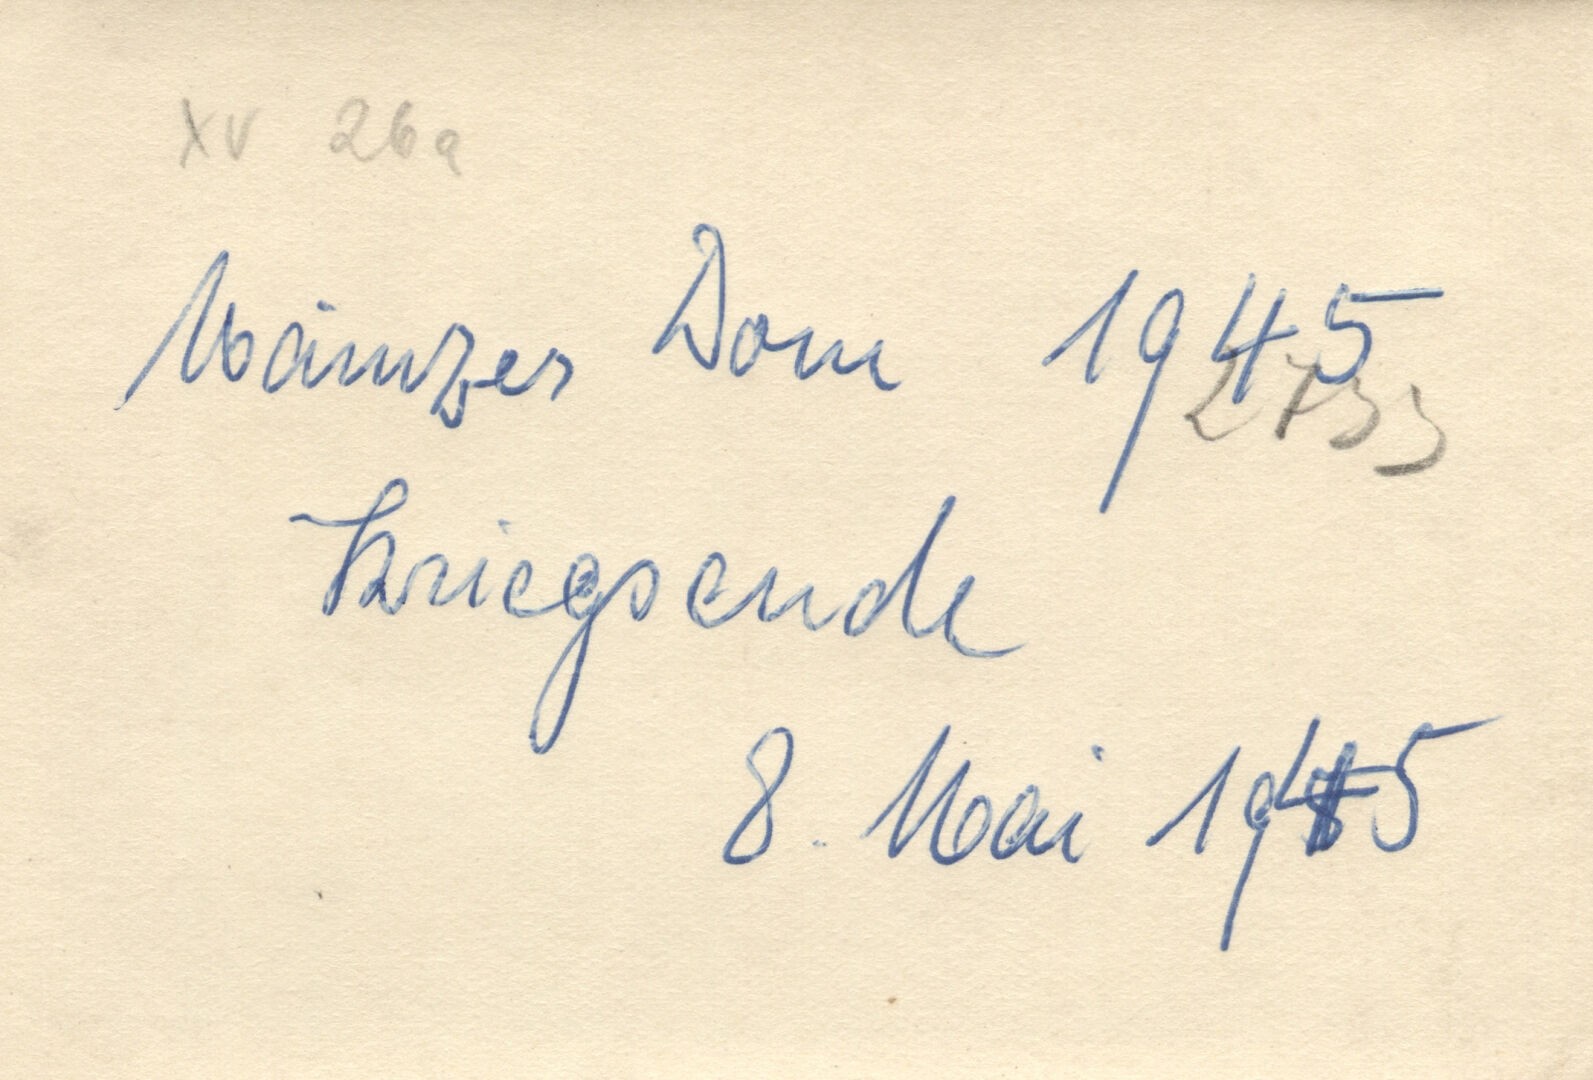 XV 26a
Mainzer Dom 1945
2733
Kriegsende
8. Mai 1945